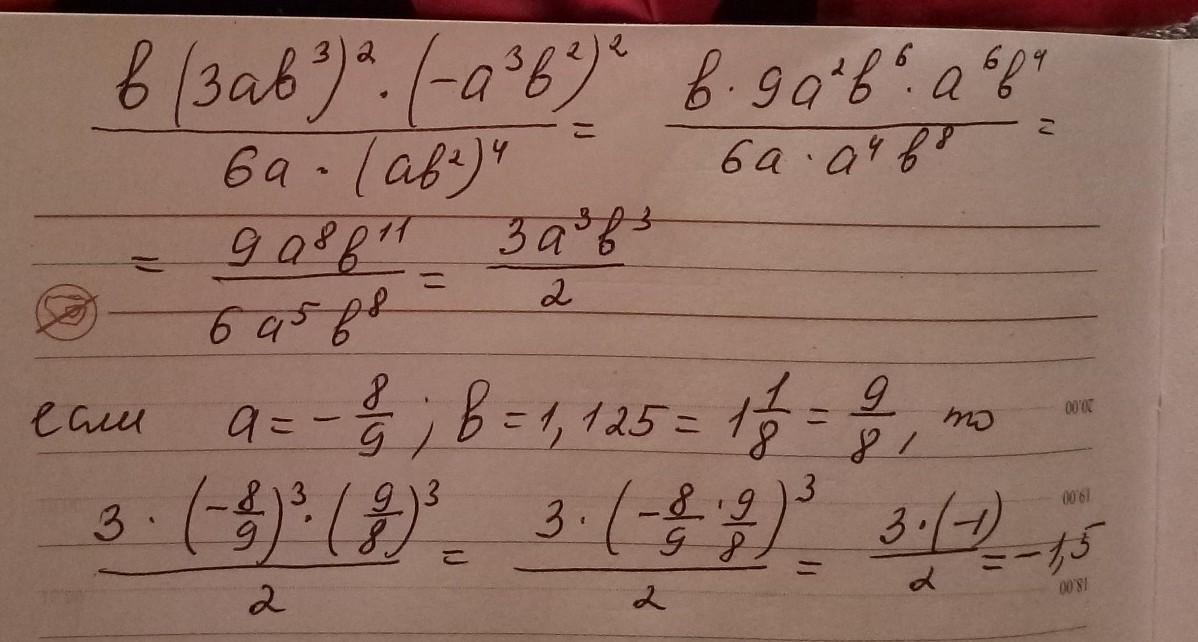 в(3ав³)² · (-а³в²)² / 6а · (ав²)⁴ = в · 9а²в⁶ · а⁶в⁴ / 6а · а⁴в⁸ =
= 9а⁸в¹¹ / 6а⁵в⁸ = 3а³в³ / 2
если а = -8/9; в = 1,125 = 1 1/8 = 9/8, то
20.00
3 · (-8/9)³ · (9/8)³ / 2 = 3 · (-8/9 · 9/8)³ / 2 = 3 · (-1) / 2 = -1,5
19.00
18.00